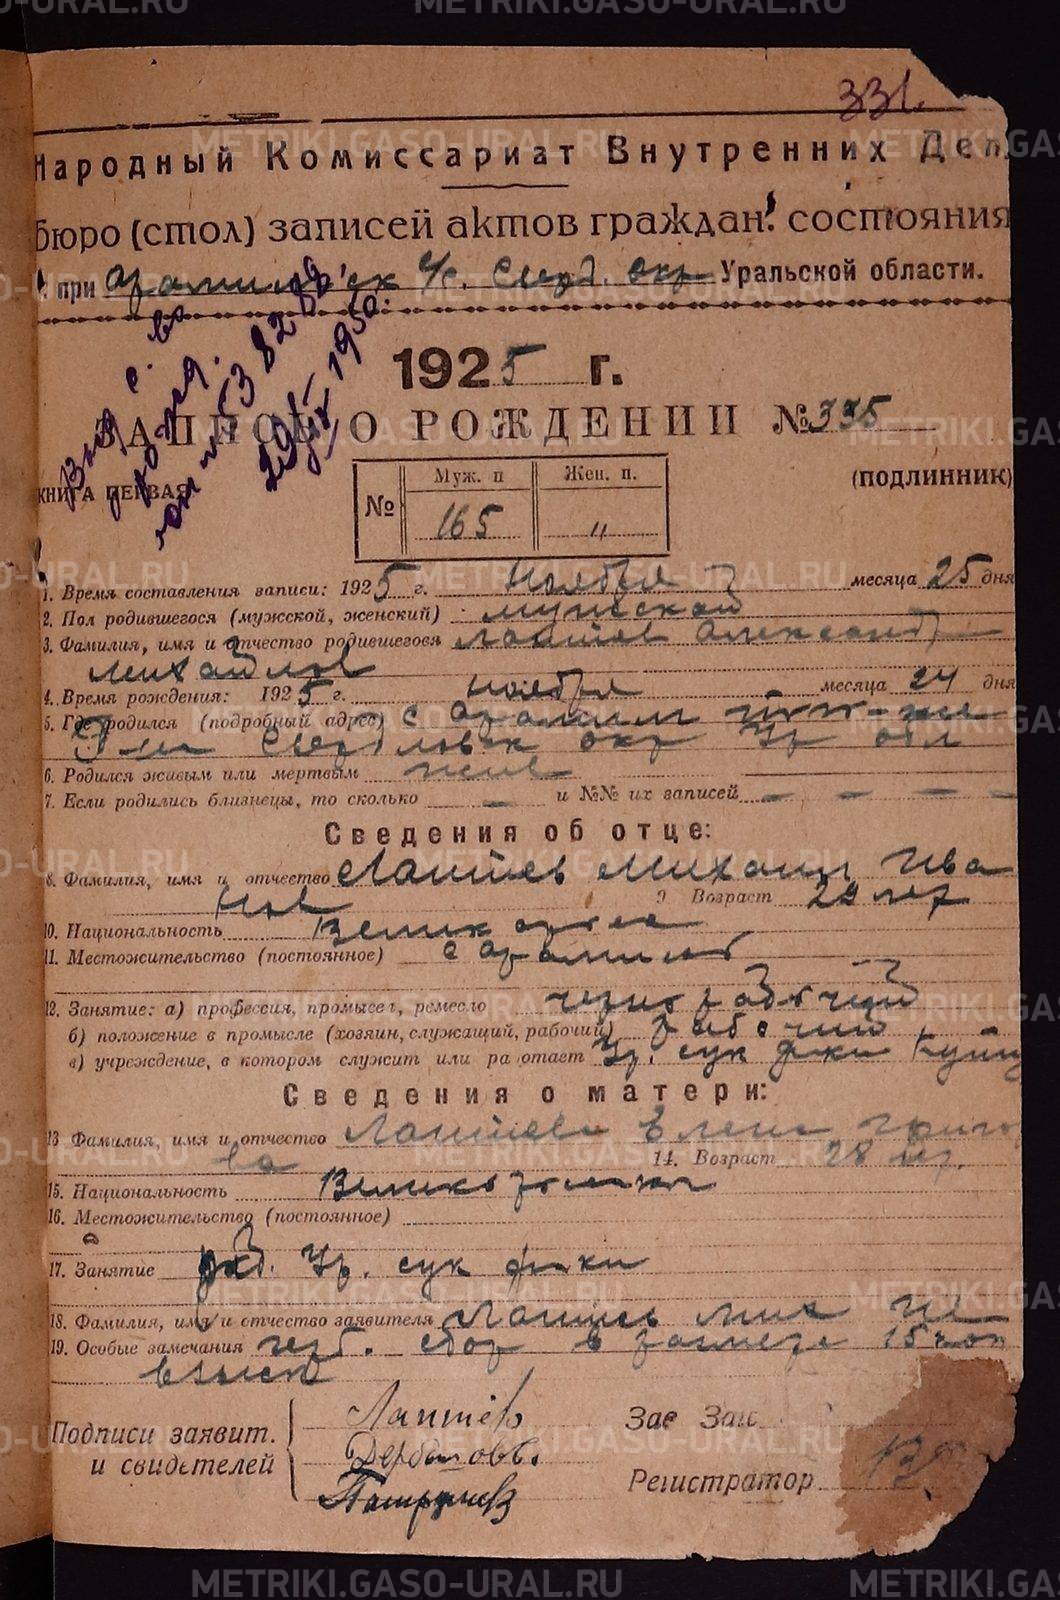 331.
Народный Комиссариат Внутренних Дел
бюро (стол) записей актов граждан. состояния
при Арамильск с/с. Сверд. окр Уральской области.
Выд с. во
1950.
1925 г.
ЗАПИСЬ О РОЖДЕНИИ № 335
КНИГА ПЕРВАЯ
(подлинник)
№ Муж. п Жен. п.
165 "
1. Время составления записи: 1925 г. Ноября месяца 25 дня
2. Пол родившегося (мужской, женский) мужской
3. Фамилия, имя и отчество родившегося Лаптев Александр
Михайлов
4. Время рождения: 1925 г. ноября месяца 24 дня
5. Где родился (подробный адрес) с Арамиль
Свердловск окр Ур обл
6. Родился живым или мертвым жив
7. Если родились близнецы, то сколько — и №№ их записей — — — —
Сведения об отце:
8. Фамилия, имя и отчество Лаптев Михаил Ива
нов 9 Возраст 29 лет
10. Национальность Великоросс
11. Местожительство (постоянное) с Арамиль
12. Занятие: а) профессия, промысел, ремесло чернорабочий
б) положение в промысле (хозяин, служащий, рабочий) рабочий
в) учреждение, в котором служит или работает Ур. сук ф-ки
Сведения о матери:
13 Фамилия, имя и отчество Лаптева Елена Григо
ва 14. Возраст 28 лет.
15. Национальность Великоросска
16. Местожительство (постоянное)
17. Занятие раб. Ур. сук ф-ки
18. Фамилия, имя и отчество заявителя Лаптев Мих Ив
19. Особые замечания герб. сбор в размере 15 коп
взыск
Подписи заявит.
и свидетелей
Лаптев
Дербышовъ.
Зав Заг
Регистратор
METRIKI.GASO-URAL.RU